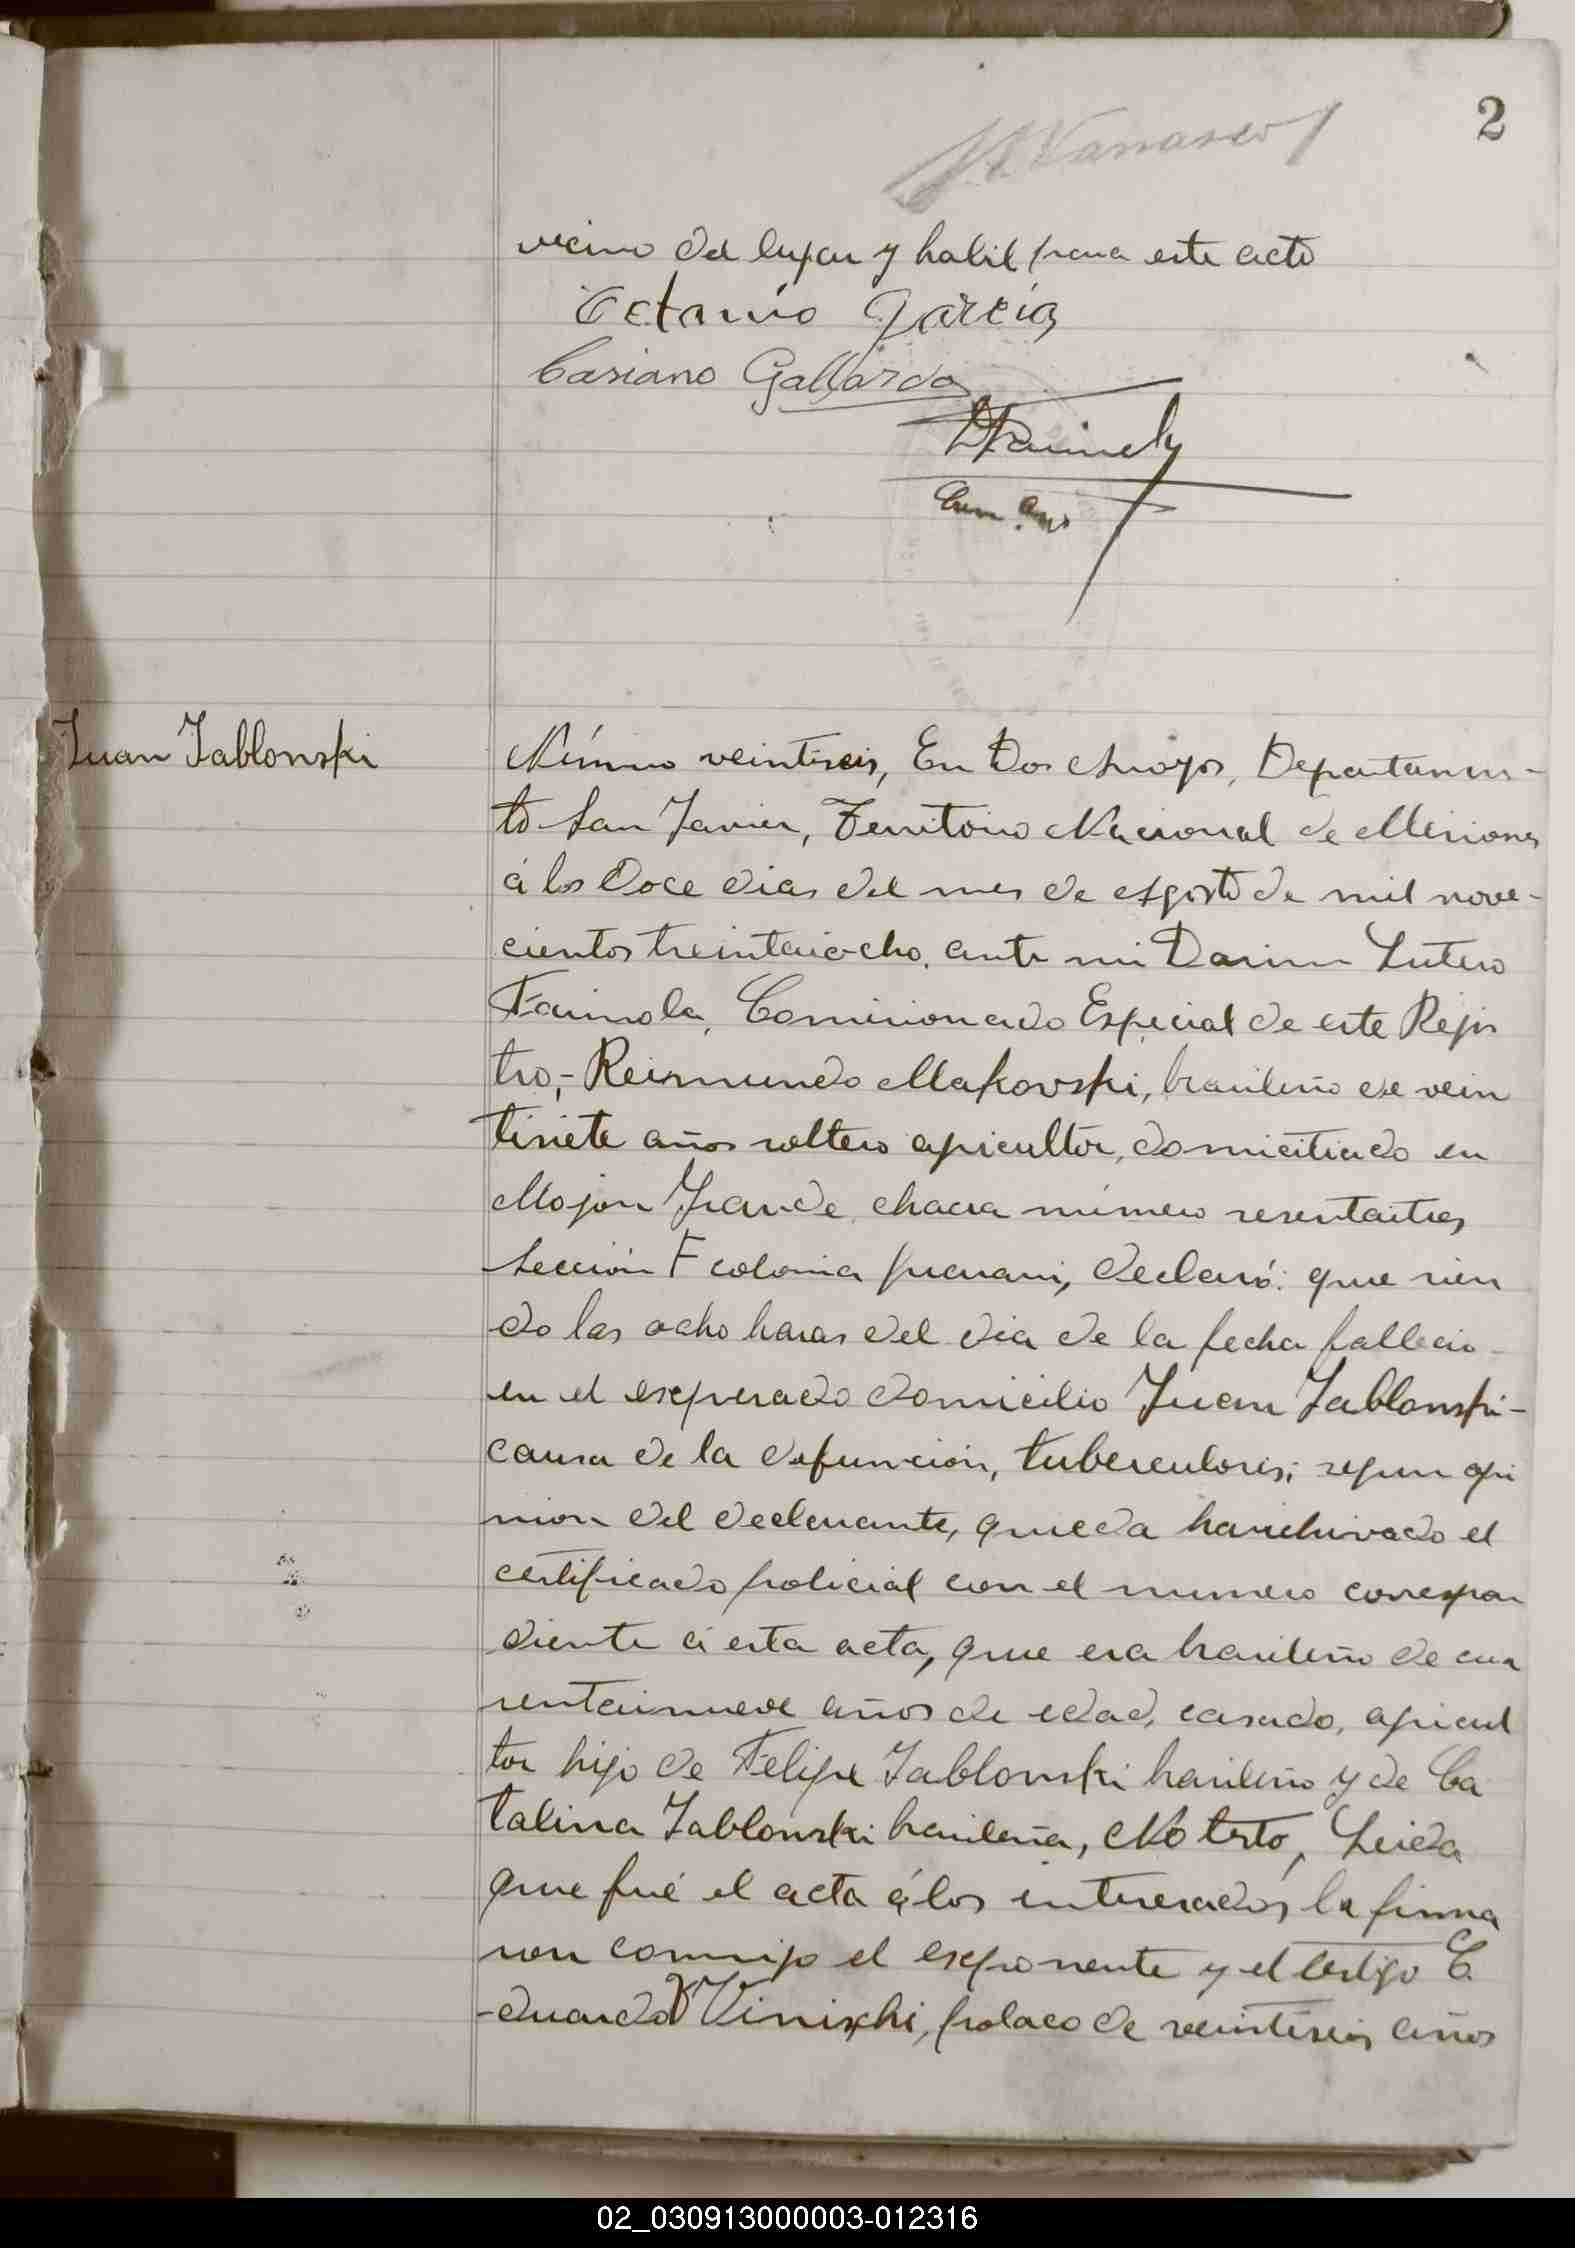 2
vecino del lugar y habil para este acto
Octavio García
Casiano Gallardo
Juan Jablonski
Número veintiseis, En Dos Arroyos, Departamen-
to San Javier, Territorio Nacional de Misiones
á los Doce dias del mes de Agosto de mil nove-
cientos treintaiocho, ante mi Lutero
Comisionado Especial de este Regis
tro,- Reimundo Makovski, brasileño de vein
tisiete años soltero apicultor, domicitiado en
Mojon Grande, chacra número sesentaitres
Sección F colonia guarani, declaró: que sien
do las ocho horas del dia de la fecha fallecio
en el expresado domicilio Juan Jablonski-
causa de la defunción, tuberculosis; segun opi
nion del declarante, queda harchivado el
certificado policial con el numero correspon
diente á esta acta, que era brasileño de cua
rentainueve años de edad, casado, apicul
tor hijo de Felipe Jablonski brasileño y de Ca
talina Jablonski brasileña, No testo, Leida
que fué el acta á los interesados la firma
ron conmigo el exponente y el testigo E
-duardo polaco de veintiseis años
02_030913000003-012316